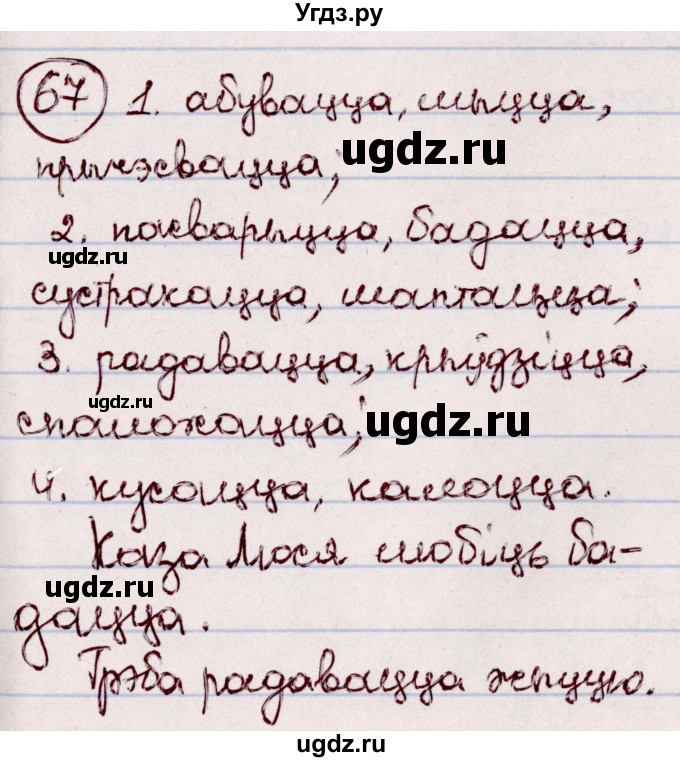 Угдз.ру
67 1. абувацца, мыцца,
прычэсвацца;
ugdz.ru
2. пасварыцца, бадацца,
ugdz.ru
сустракацца, шаптацца;
3. радавацца, крыўдзіцца,
ugdz.ru
спалохацца;
ugdz.ru
4. кусацца, калоцца.
Каза Люся любіць ба-
ugdz.ru
дацца.
Трэба радавацца жыццю.
ugdz.ru